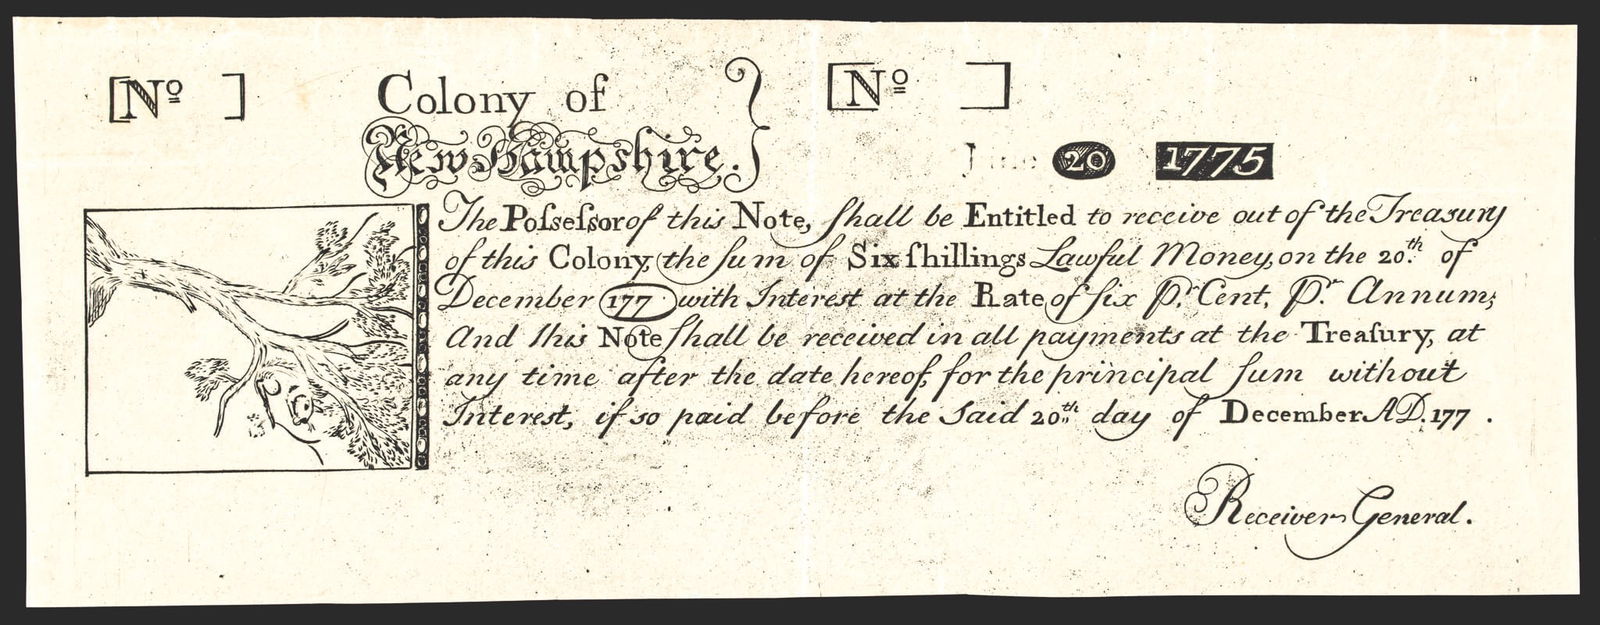 [No ] Colony of [No ]
New Hampshire.
June 20 1775
The Poſseſsor of this Note, ſhall be Entitled to receive out of the Treasury
of this Colony, the ſum of Six ſhillings Lawful Money, on the 20.th of
December 177 with Interest at the Rate of ſix Pr. Cent, Pr. Annum;
And this Note ſhall be received in all payments at the Treaſury, at
any time after the date hereof, for the principal ſum without
Interest, if so paid before the Said 20th day of December AD. 177 .
Receiver General.